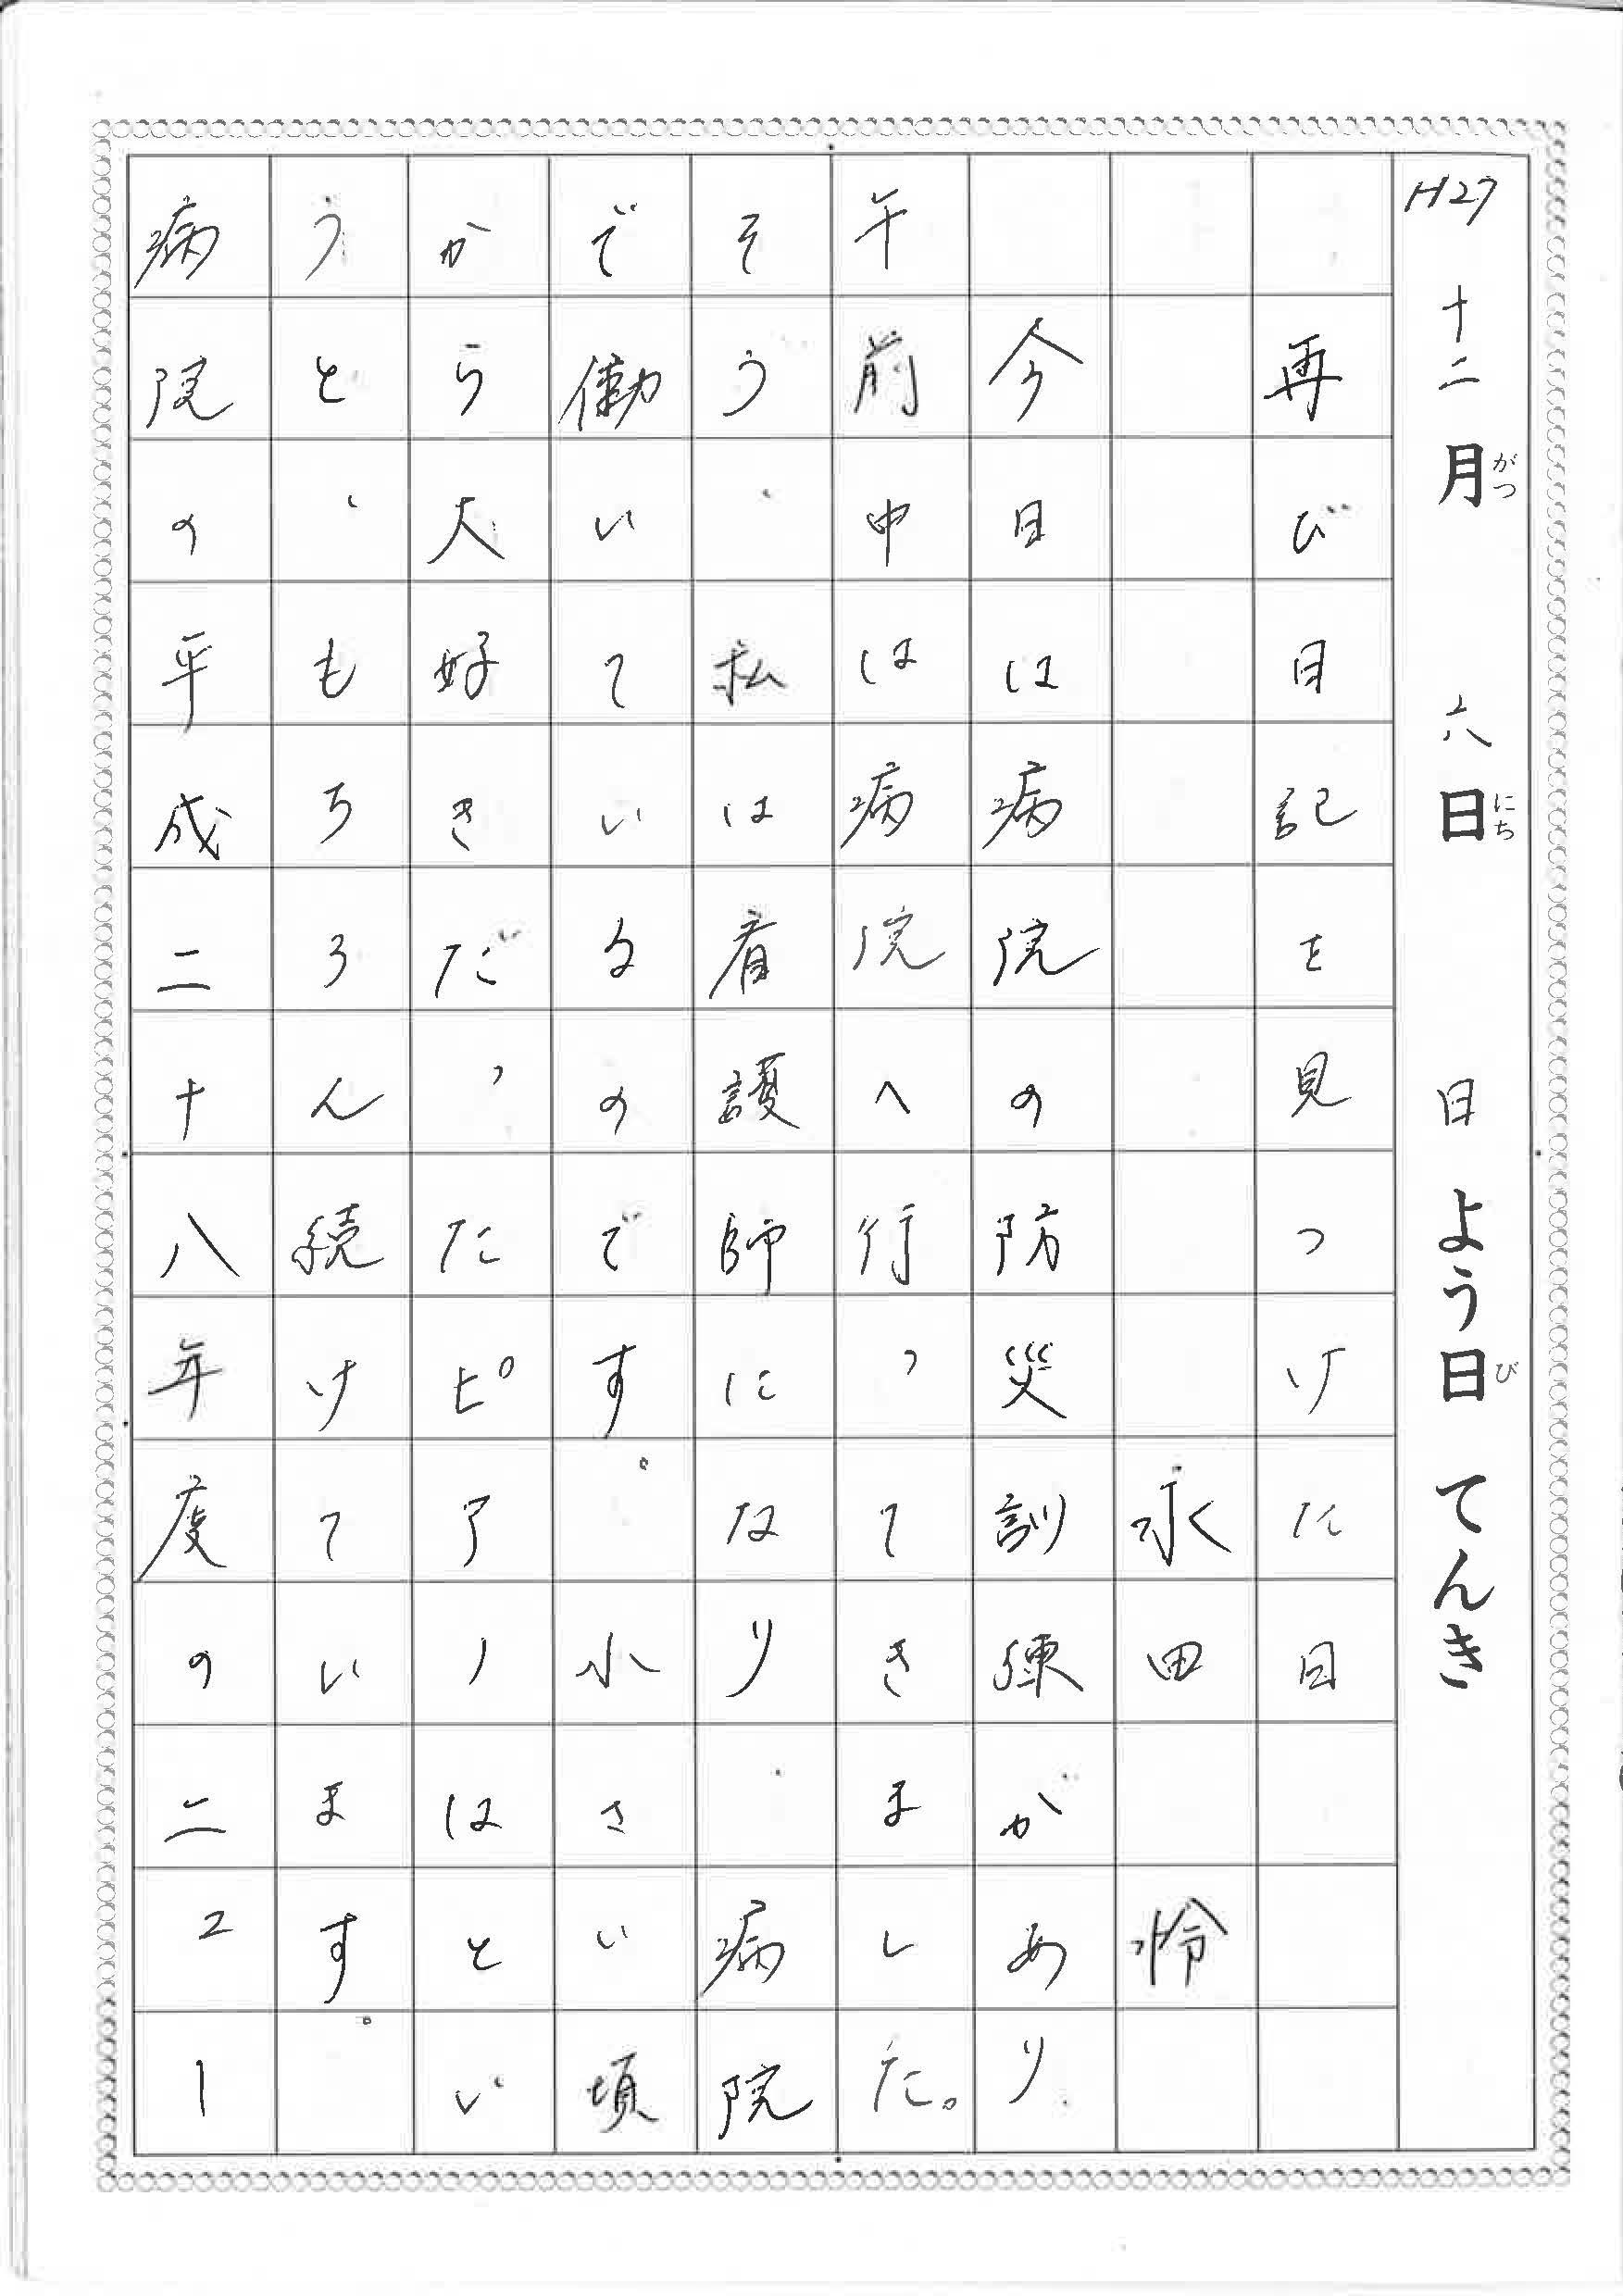 H27 十二月 六日 日よう日 てんき
がつ にち び
再び日記を見つけた日
永田 怜
今日は病院の防災訓練があり、
午前中は病院へ行ってきました。
そう、私は看護師になり、病院
で働いているのです。小さい頃
から大好きだったピアノはとい
うと、もちろん続けています。
病院の平成二十八年度のニュー